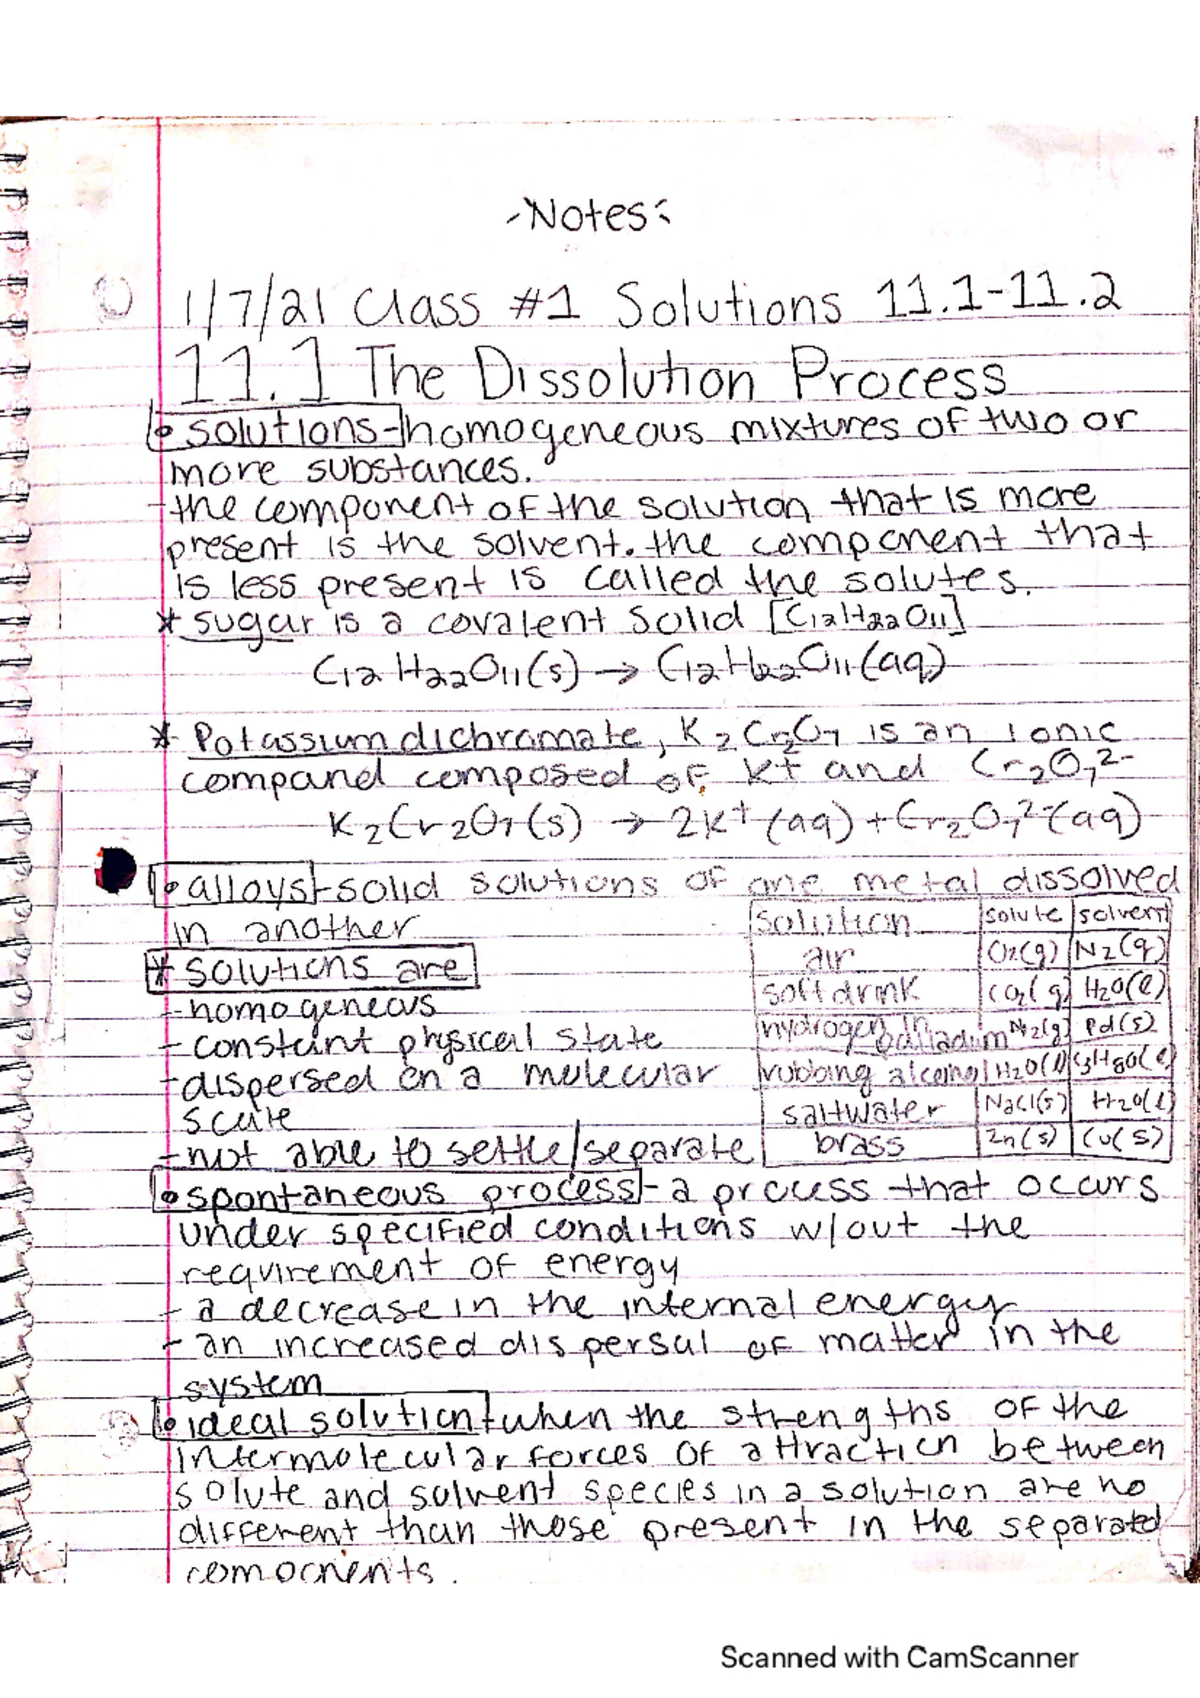 -Notes:
1/7/21 Class #1 Solutions 11.1-11.2
11.1 The Dissolution Process
• solutions-homogeneous mixtures of two or
more substances.
-the component of the solution that is more
present is the solvent. the component that
is less present is called the solutes.
* sugar is a covalent solid [C12H22O11]
C12H22O11(s) → C12H22O11(aq)
* Potassium dichromate, K2Cr2O7 is an ionic
compound composed of K+ and Cr2O7 2-
K2Cr2O7(s) → 2K+(aq) + Cr2O7 2-(aq)
• alloys-solid solutions of one metal dissolved
in another
* solutions are
-homogeneous
- constant physical state
-dispersed on a molecular
scale
-not able to settle/separate
solution solute solvent
air O2(g) N2(g)
soft drink CO2(g) H2O(l)
hydrogen in palladium H2(g) Pd(s)
rubbing alcohol H2O(l) C3H8O(l)
saltwater NaCl(s) H2O(l)
brass Zn(s) Cu(s)
• spontaneous process-a process that occurs
under specified conditions w/out the
requirement of energy
- a decrease in the internal energy
- an increased dispersal of matter in the
system
• ideal solution-when the strengths of the
intermolecular forces of attraction between
solute and solvent species in a solution are no
different than those present in the separated
components.
Scanned with CamScanner